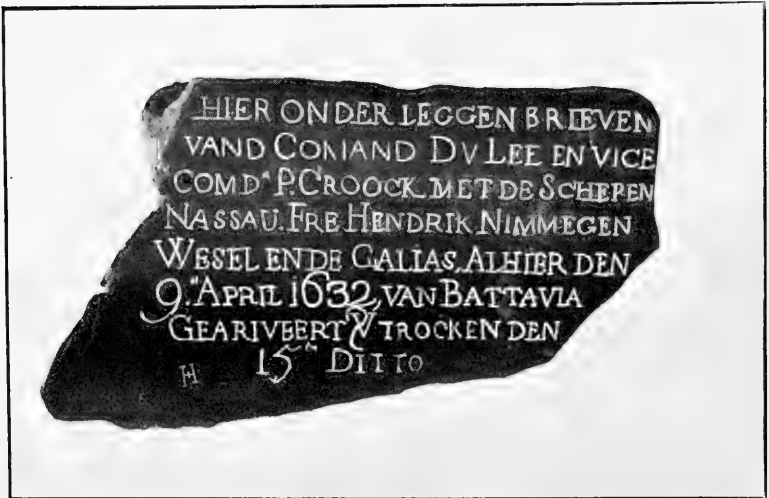 HIER ONDER LEGGEN BRIEVEN
VAND COMAND DV LEE EN VICE
COMDR P. CROOCK MET DE SCHEPEN
NASSAU. FRE HENDRIK NIMMEGEN
WESEL ENDE GALIAS. ALHIER DEN
9.EN APRIL 1632, VAN BATTAVIA
GEARIVEERT VERTROCKEN DEN
15EN DITTO
H